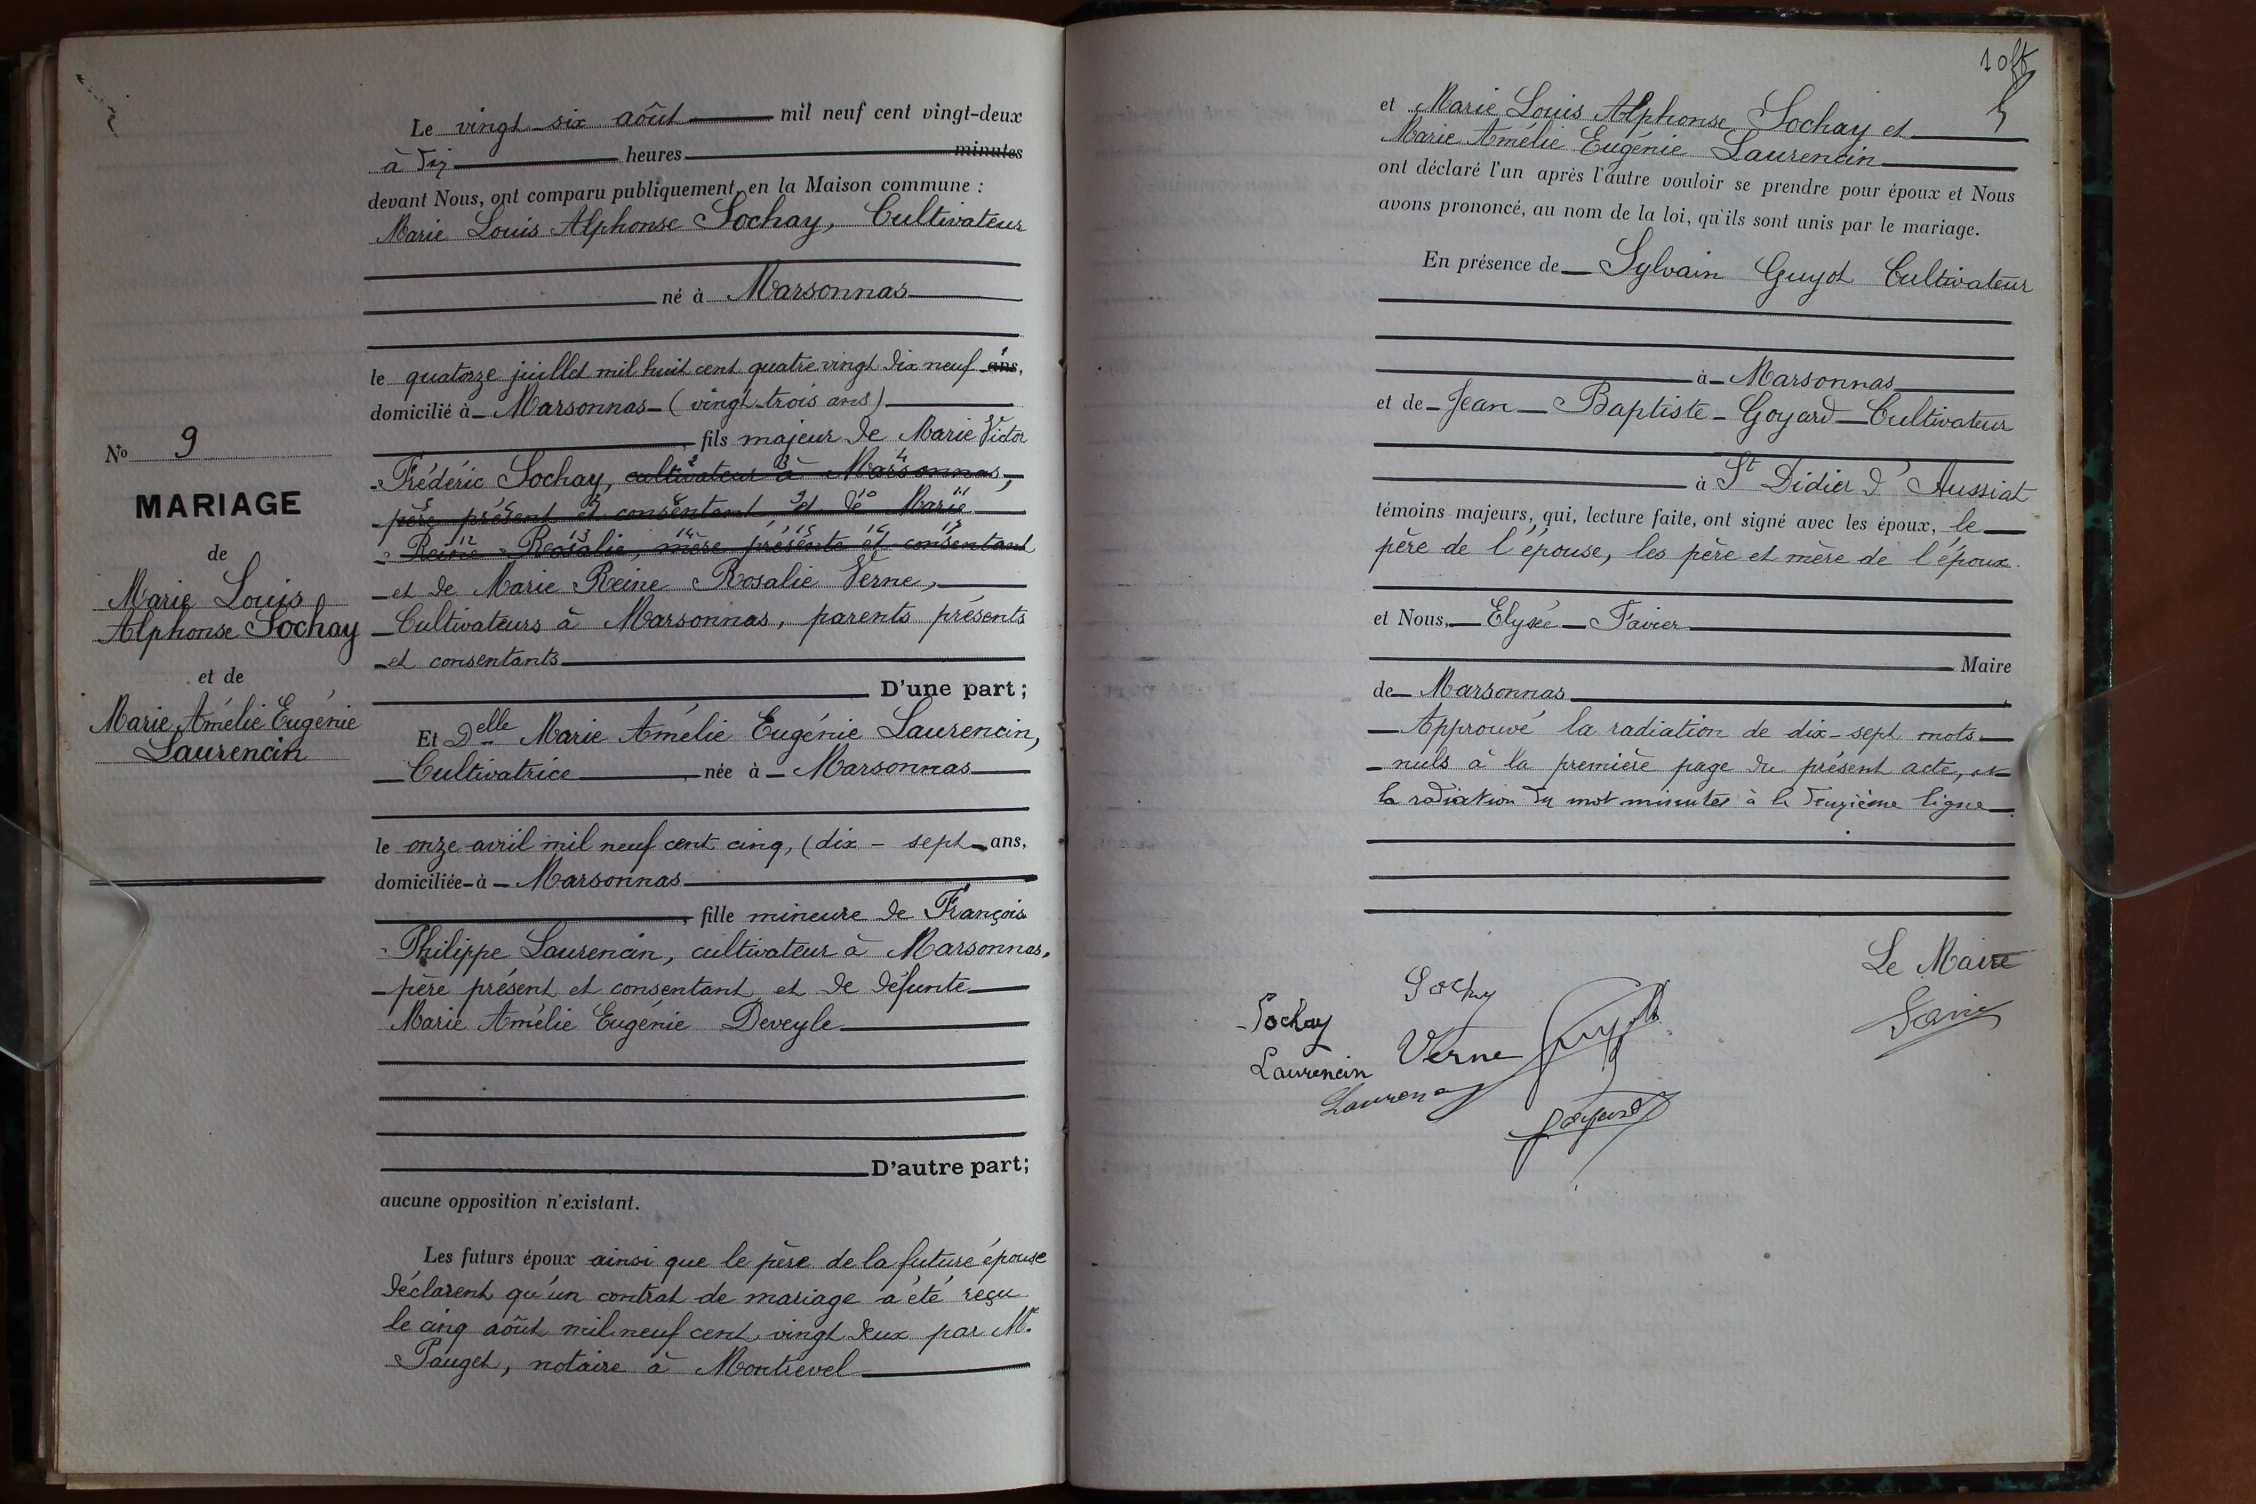 Le vingt six août mil neuf cent vingt-deux
à dix heures minutes
devant Nous, ont comparu publiquement en la Maison commune :
Marie Louis Alphonse Sochay, Cultivateur
né à Marsonnas
le quatorze juillet mil huit cent quatre vingt dix neuf ans,
domicilié à Marsonnas (vingt-trois ans)
fils majeur de Marie Victor
Frédéric Sochay, cultivateur à Marsonnas,
père présent et consentant et de Marie
Reine Rosalie, mère présente et consentant
et de Marie Reine Rosalie Verne,
Cultivateurs à Marsonnas, parents présents
et consentants
D'une part ;
Et Delle Marie Amélie Eugénie Laurencin,
Cultivatrice née à Marsonnas
le onze avril mil neuf cent cinq, (dix-sept ans,
domiciliée à Marsonnas
fille mineure de François
Philippe Laurencin, cultivateur à Marsonnas,
père présent et consentant et de défunte
Marie Amélie Eugénie Deveyle
D'autre part ;
aucune opposition n'existant.
Les futurs époux ainsi que le père de la future épouse
déclarent qu'un contrat de mariage a été reçu
le cinq août mil neuf cent vingt deux par Me
Pauget, notaire à Montrevel
No 9
MARIAGE
de
Marie Louis
Alphonse Sochay
et de
Marie Amélie Eugénie
Laurencin
10
et Marie Louis Alphonse Sochay et
Marie Amélie Eugénie Laurencin
ont déclaré l'un après l'autre vouloir se prendre pour époux et Nous
avons prononcé, au nom de la loi, qu'ils sont unis par le mariage.
En présence de Sylvain Guyot Cultivateur
à Marsonnas
et de Jean-Baptiste Goyard Cultivateur
à St Didier d'Aussiat
témoins majeurs, qui, lecture faite, ont signé avec les époux, le
père de l'épouse, les père et mère de l'époux.
et Nous, Elysée Favier
Maire
de Marsonnas
Approuvé la radiation de dix-sept mots
nuls à la première page du présent acte, et
la radiation du mot minutes à la deuxième ligne
Le Maire
Sochay
Sochay
Laurencin
Verne
Guyot
Goyard
Favier